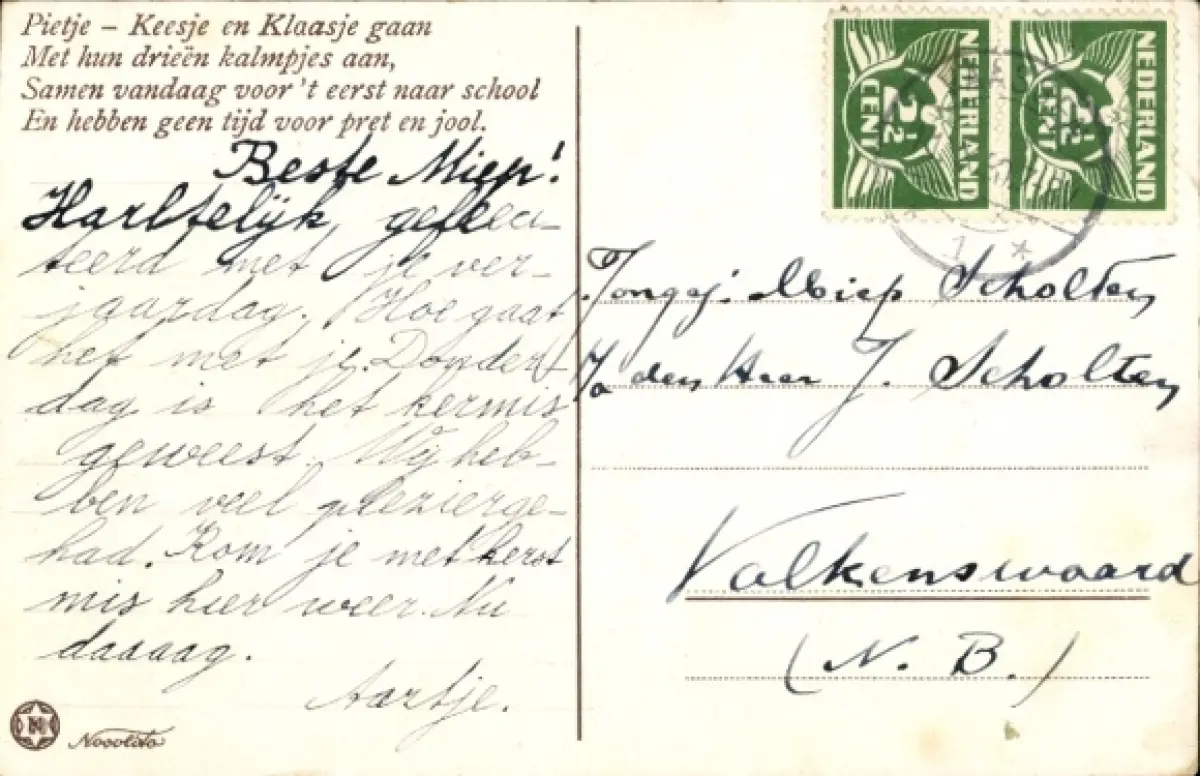 Pietje – Keesje en Klaasje gaan
Met hun drieën kalmpjes aan,
Samen vandaag voor 't eerst naar school
En hebben geen tijd voor pret en jool.
Beste Miep!
Harltelijk gefeleci-
teerd met je ver-
jaardag. Hoe gaat
het met je. Donder
dag is het kermis
geweest. Wij heb-
ben veel plezierge-
had. Kom je met kerst
mis hier weer. Nu
daaaag.
Aartje.
Novolito
NEDERLAND
2½
CENT
NEDERLAND
2½
CENT
1
Jongej. Miep Scholten
p/a den Heer J. Scholten
Valkenswaard
(N. B.)